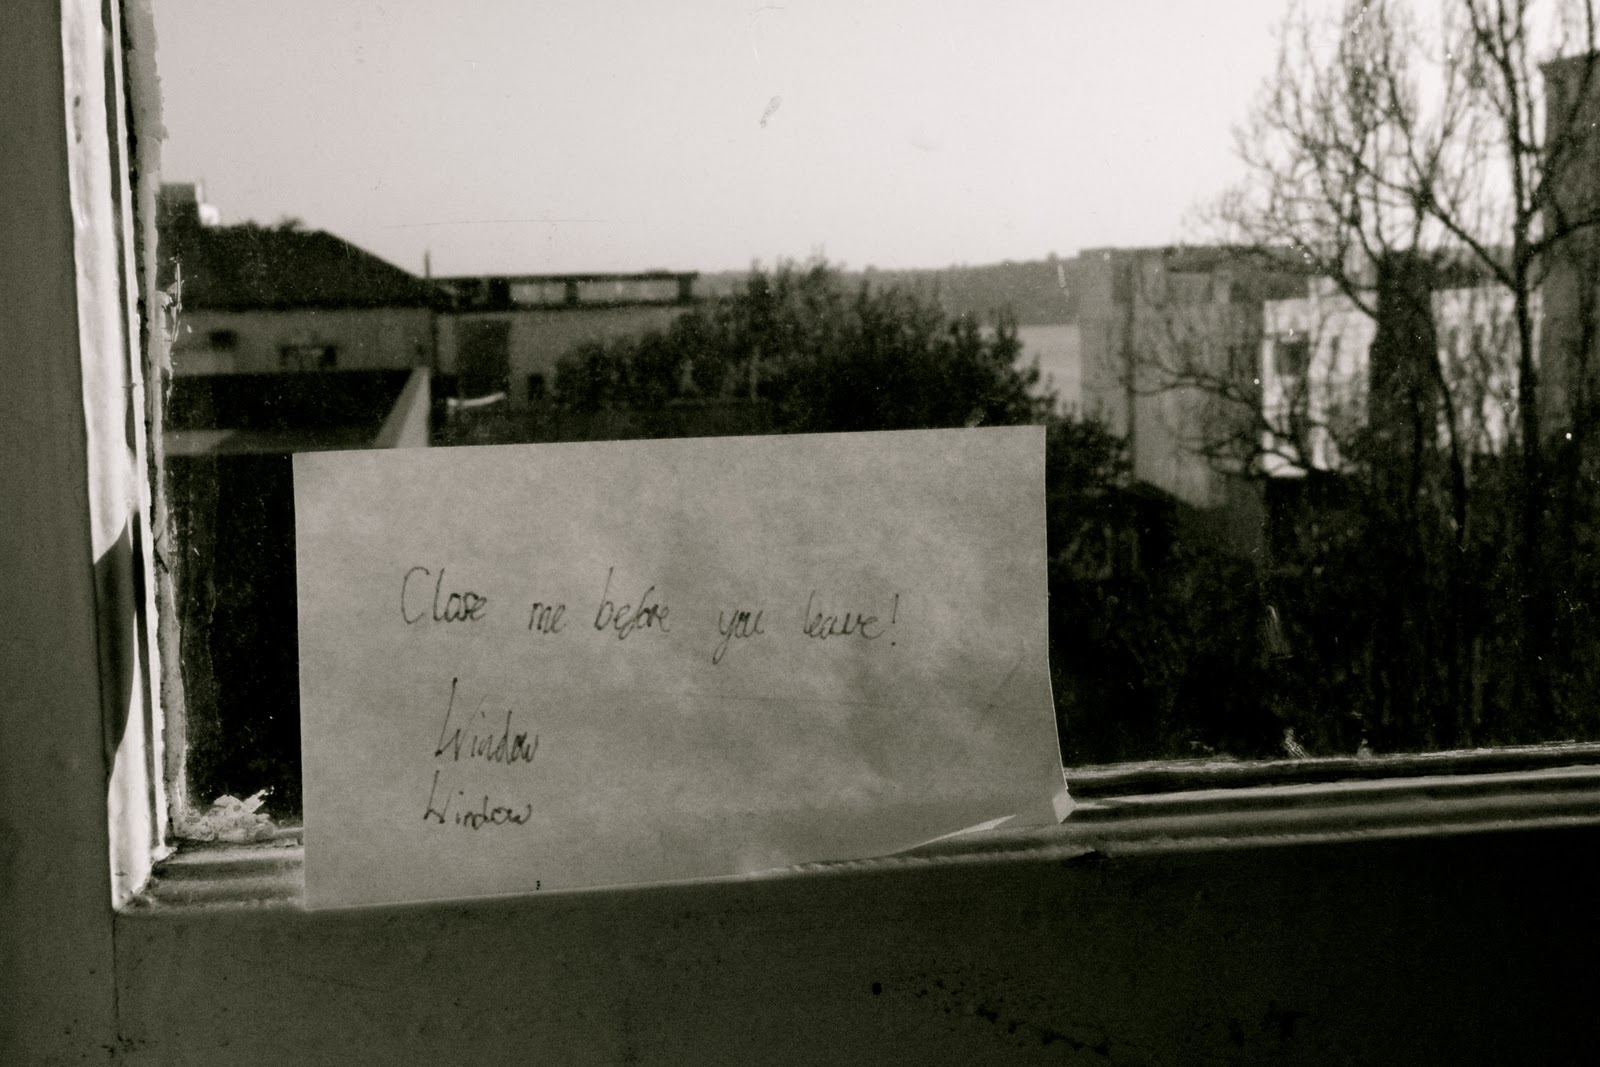 Close me before you leave!
Window
Window